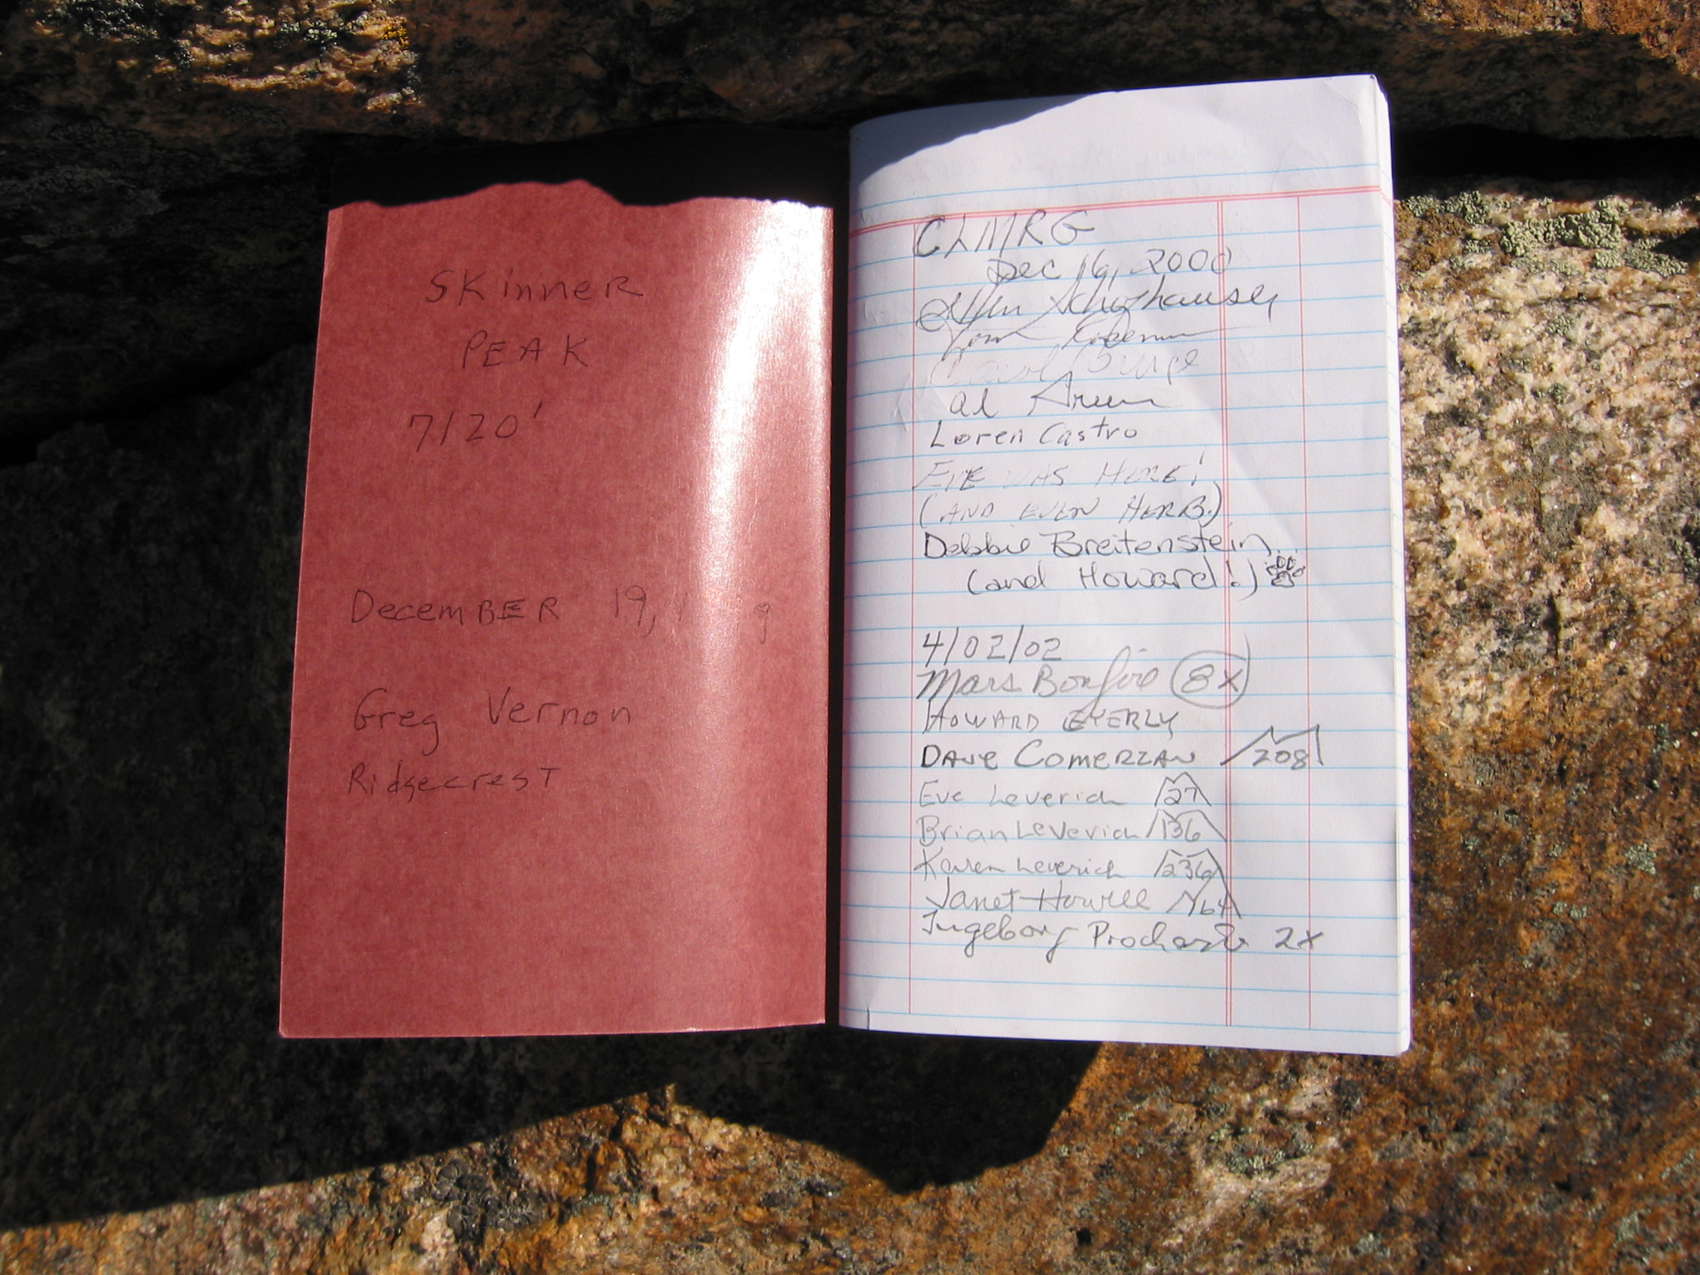 SKinneR
PEAK
7120'
DecemBER 19, 
Greg Vernon
RidgecresT
CLMRG
Dec 16, 2000
Tom
Carol Burge
Al
Loren Castro
EVE WAS HERE!
(AND EVEN HERB.)
Debbie Breitenstein
(and Howard!)
4/02/02
Mars Bonfire 8X
HOWARD EYERLY
DAVE COMERZAN 208
Eve Leverich 27
Brian Leverich 136
Karen Leverich 236
Janet Howell 164
Ingeborg Prochazka 2x